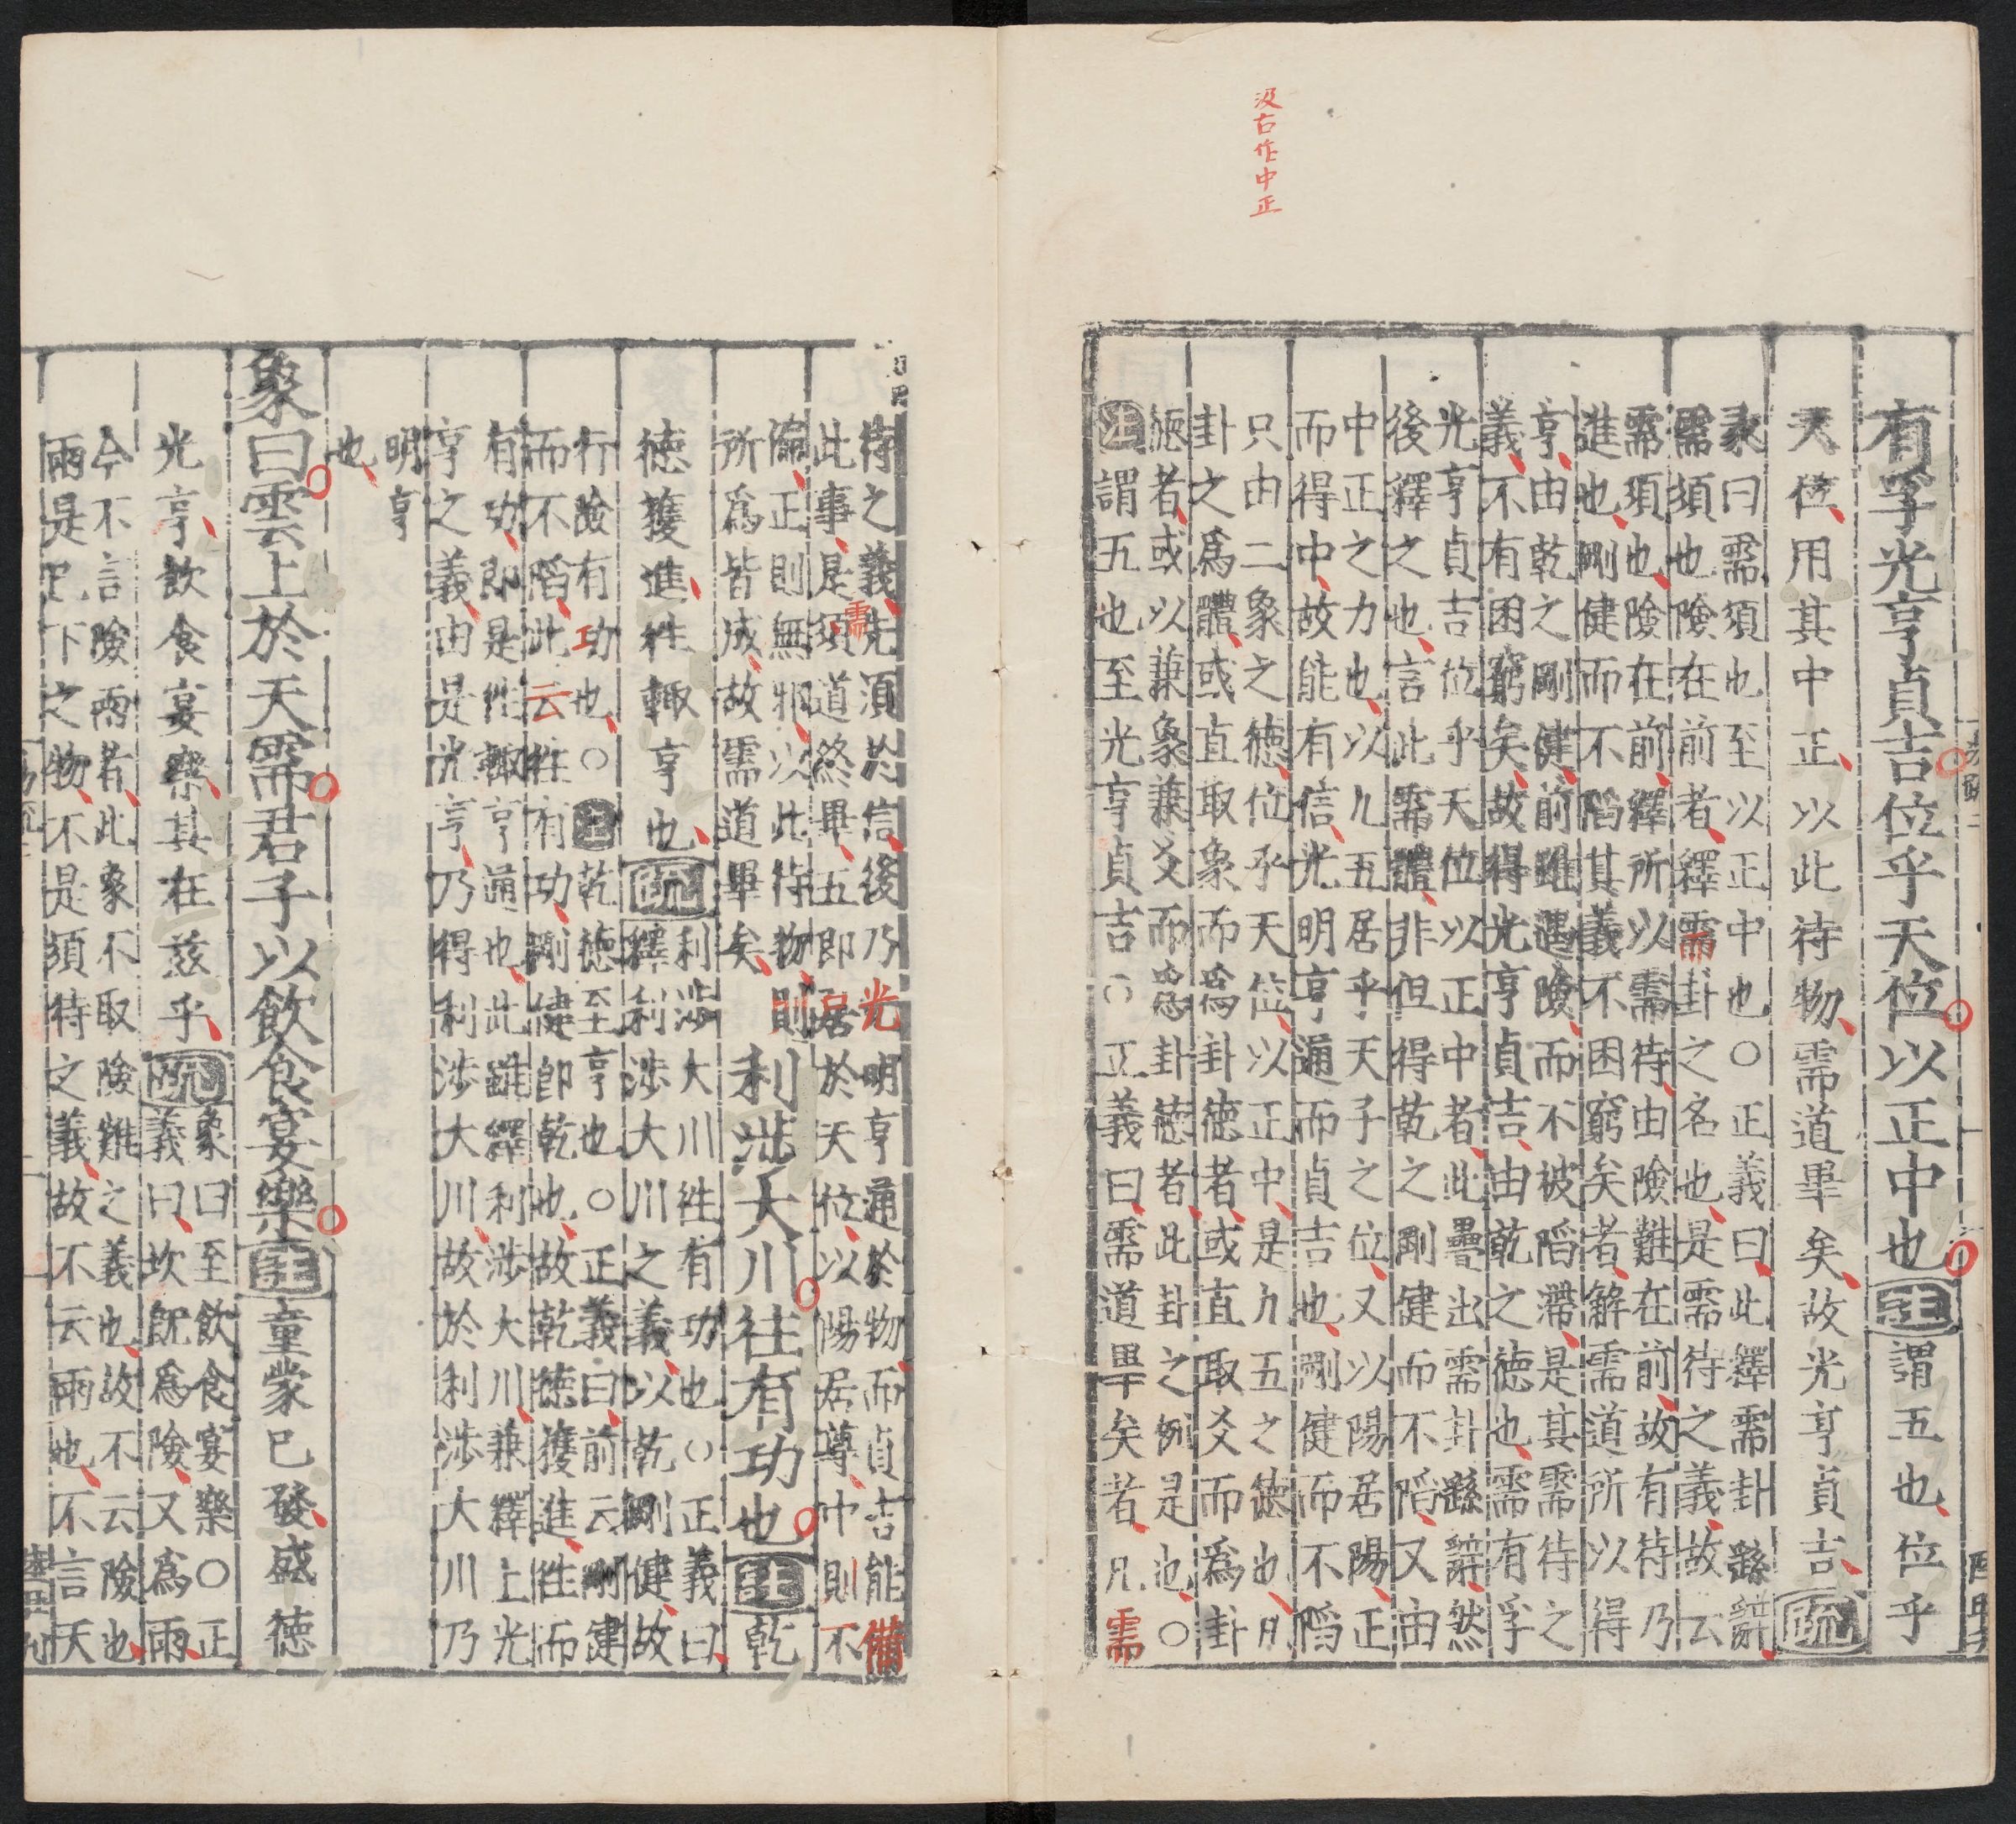 汲古作中正
有孚光亨貞吉位乎天位以正中也注謂五也位乎
天位用其中正以此待物需道畢矣故光亨貞吉疏
彖曰需須也至以正中也○正義曰此釋需卦繇辭
需須也險在前者釋需卦之名也是需待之義故云
需須也險在前釋所以需待由險難在前故有待乃
進也剛健而不陷其義不困窮矣者解需道所以得
亨由乾之剛健前雖遇險而不被陷滯是其需待之
義不有困窮矣故得光亨貞吉由乾之德也需有孚
光亨貞吉位乎天位以正中者此疊出需卦繇辭然
後釋之也言此需體非但得乾之剛健而不陷又由
中正之力也以九五居乎天子之位又以陽居陽正
而得中故能有信光明亨通而貞吉也剛健而不陷
只由二象之德位乎天位以正中是九五之德也凡
卦之爲體或直取象而爲卦德者或直取爻而爲卦
德者或以兼象兼爻而爲卦德者此卦之例是也○
注謂五也至光亨貞吉○正義曰需道畢矣者凡需
待之義先須於信後乃光明亨通於物而貞吉能備
此事是須需道終畢五即居於天位以陽居尊中則不
偏正則無邪以此待物則
所爲皆成故需道畢矣
利涉大川往有功也注乾
德獲進往輒亨也疏利涉大川往有功也○正義曰
釋利涉大川之義以乾剛健故
行險有功也○注乾德至亨也○正義曰前云剛健
而不陷此云往有功剛健即乾也故乾德獲進往而
有功即是往輒亨通也此雖釋利涉大川兼釋上光
亨之義由是光亨乃得利涉大川故於利涉大川乃
明亨
也
象曰雲上於天需君子以飲食宴樂注童蒙已發盛德
光亨飲食宴樂其在茲乎疏象曰至飲食宴樂○正
義曰坎旣爲險又爲雨
今不言險雨者此象不取險難之義也故不云險也
雨是已下之物不是須待之義故不云雨也不言天